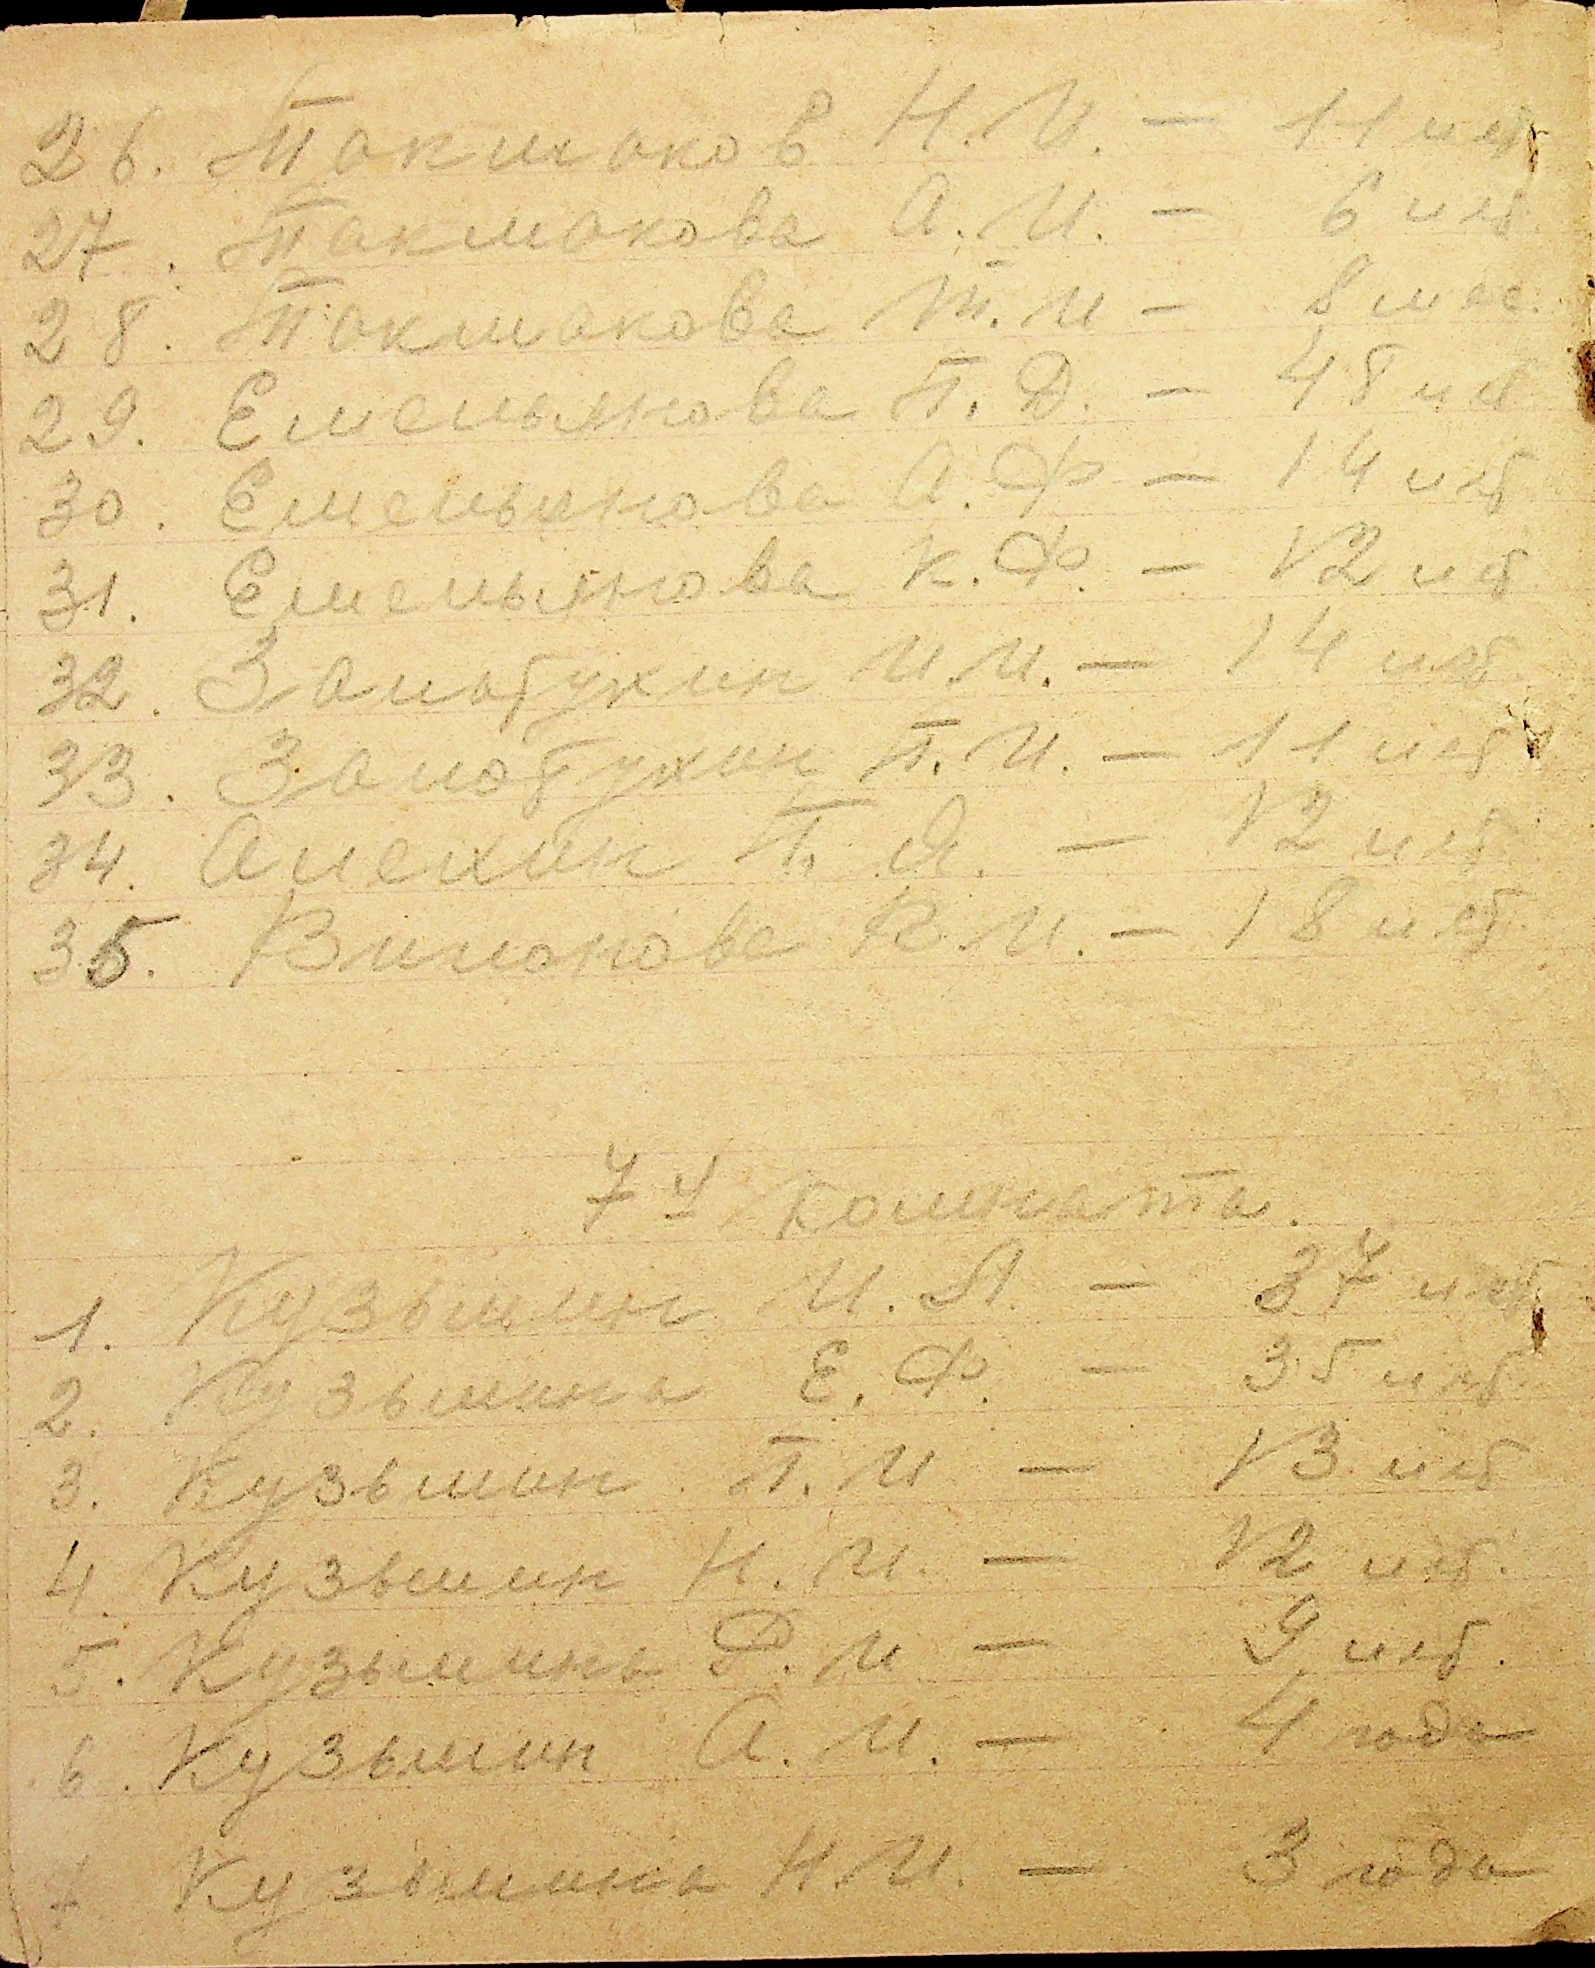 26. Токмаков Н.И. — 11 лет
27. Токмакова А.И. — 6 лет.
28. Токмакова Т.И — 8 мес.
29. Емельянова П.Д. — 48 лет
30. Емельянова А.Ф — 14 лет
31. Емельянова К.Ф. — 12 лет
32. Золотухин И.И. — 14 лет.
33. Золотухин П.И. — 11 лет
34. Алехин П.Я. — 12 лет
35. К.И. — 18 лет.
7я комната.
1. Кузьмин И.Л. — 37 лет
2. Кузьмина Е.Ф. — 35 лет
3. Кузьмин П.И — 13 лет
4. Кузьмин Н.И. — 12 лет.
5. Кузьмина Р.И — 9 лет.
6. Кузьмин А.И. — 4 года
7. Кузьмина Н.И. — 3 года